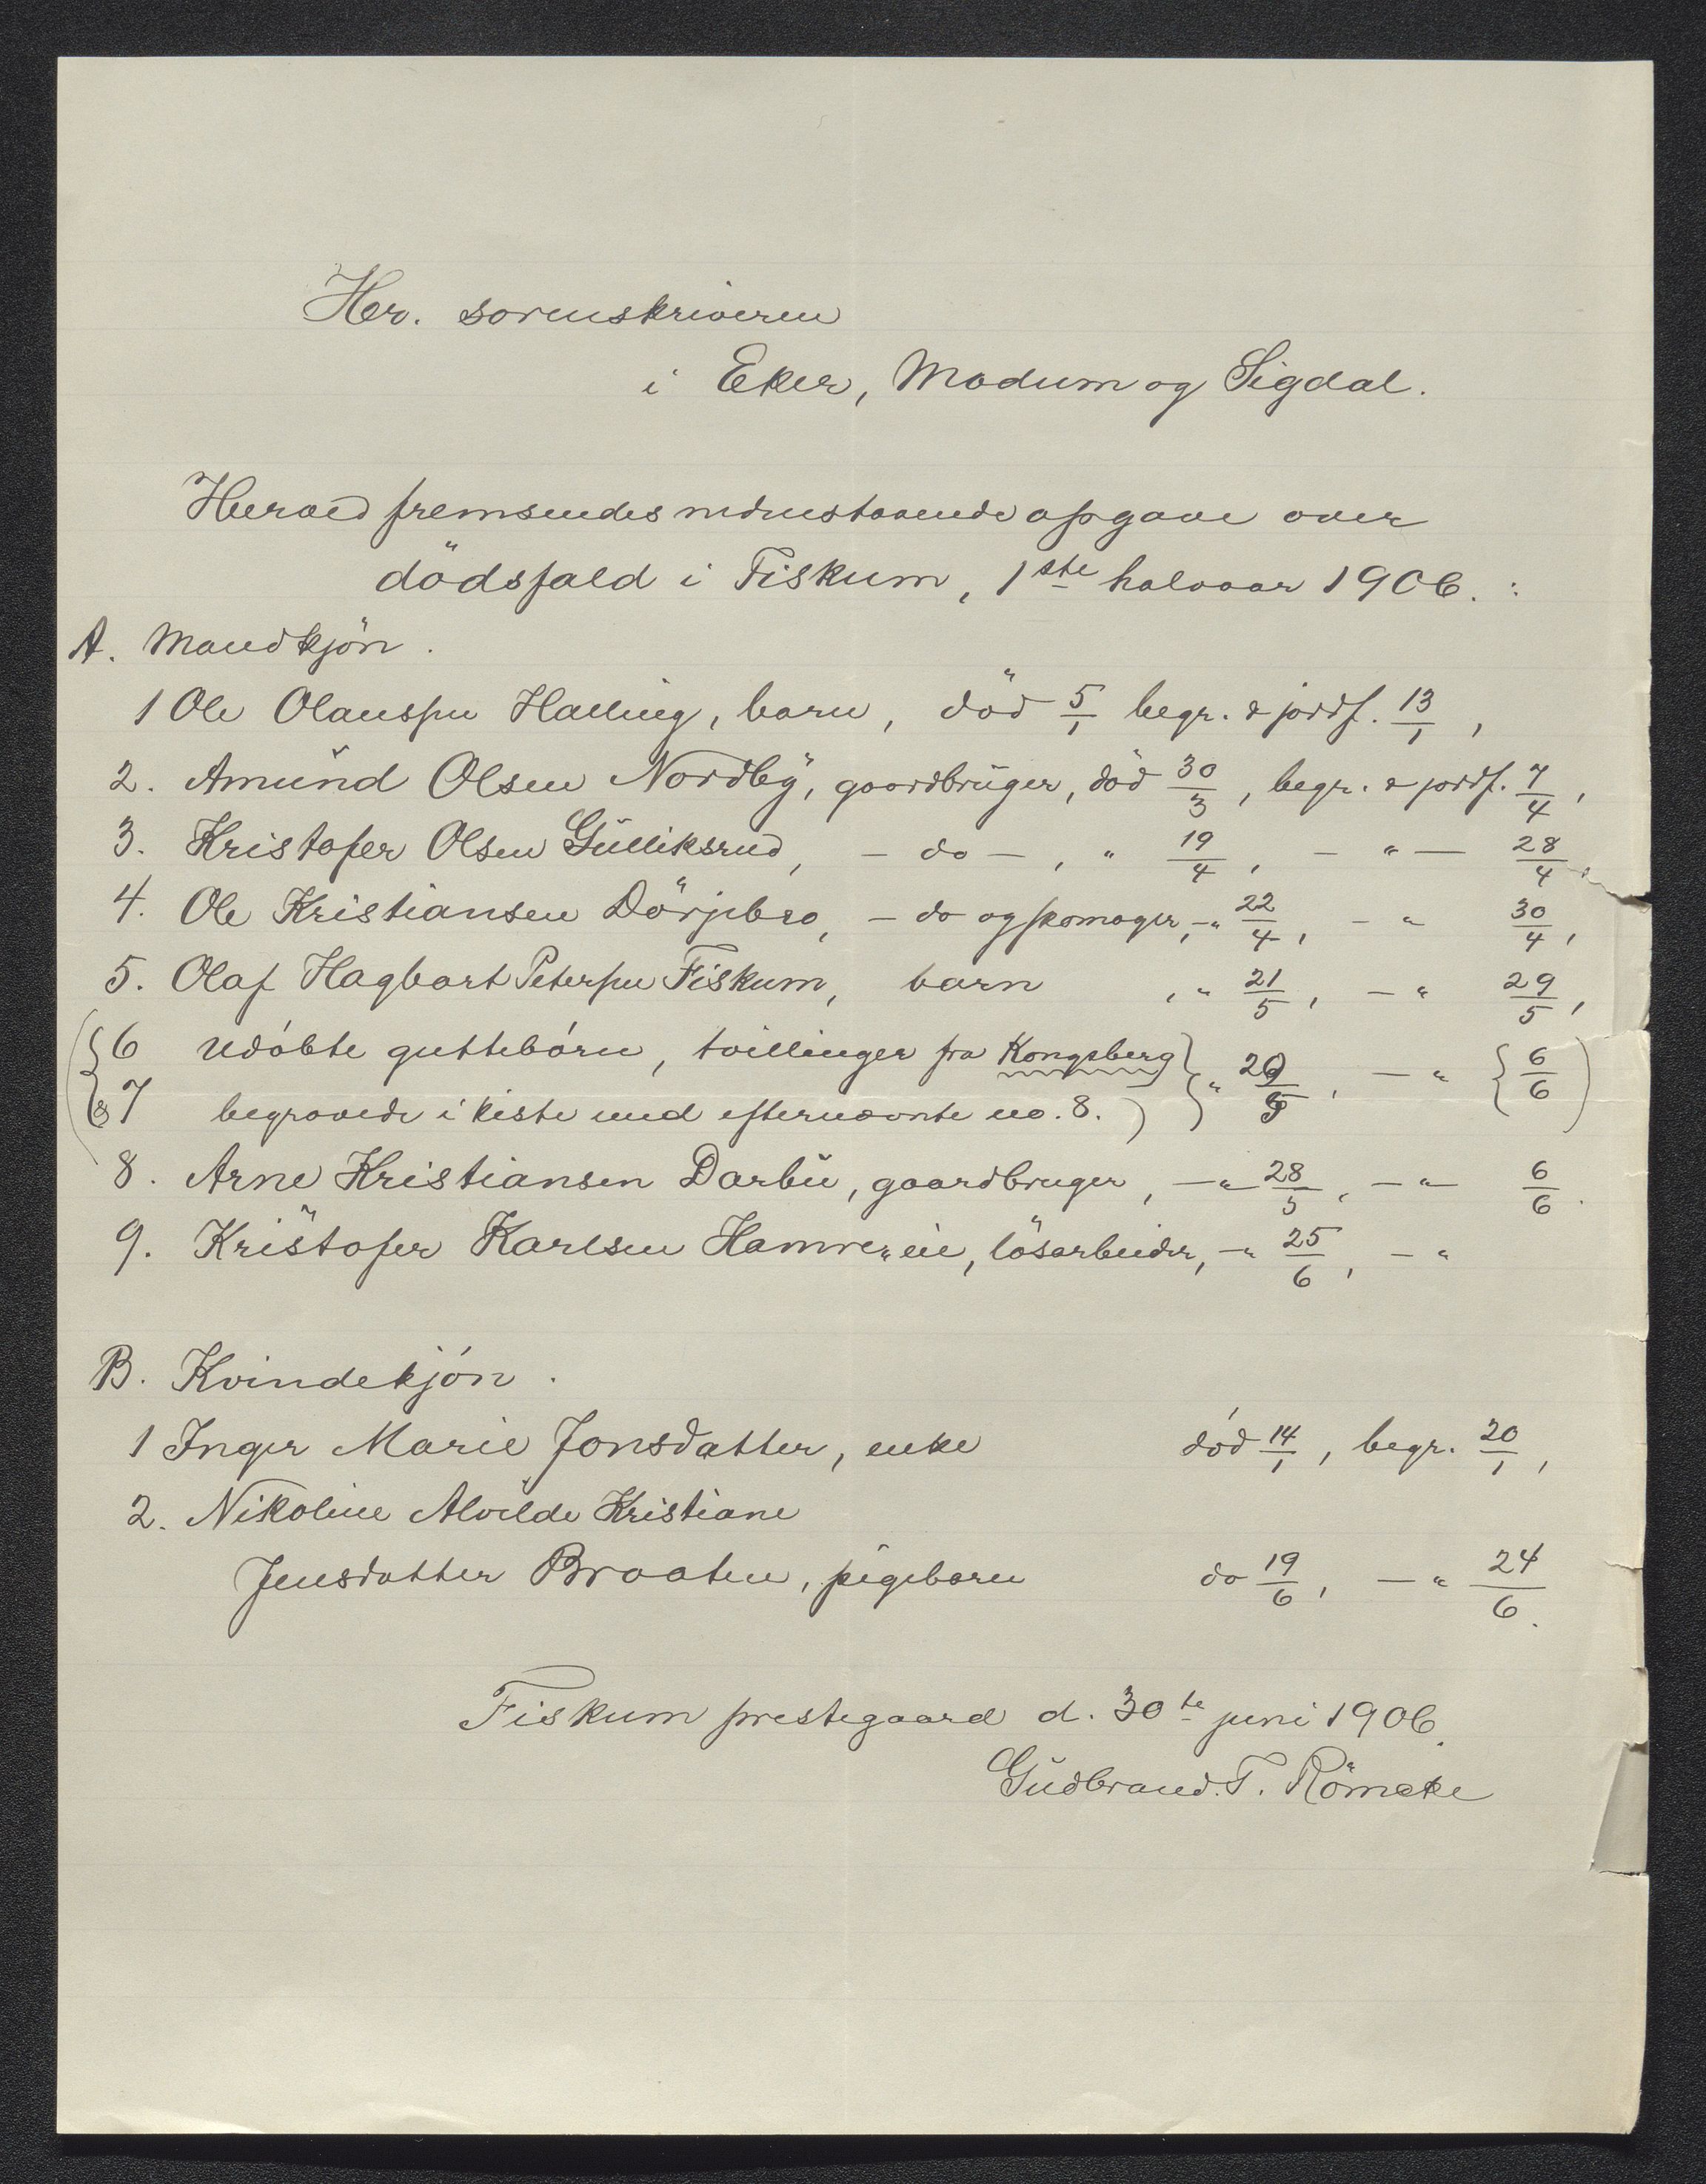 Hr. sorenskriveren
i Eker, Modum og Sigdal.
Herved fremsendes nedenstaaende opgave over
dödsfald i Fiskum, 1ste halvaar 1906. :
A. Mandkjön.
1 Ole Olaussen Halling, barn, död 5/1 begr. & jordf. 13/1,
2. Amund Olsen Nordby, gaardbruger, död 30/3, begr. & jordf. 7/4,
3. Kristofer Olsen Gulliksrud, - do -, " 19/4, - " - 28/4,
4. Ole Kristiansen Dörjebro, - do og skomager, - " 22/4, - " 30/4,
5. Olaf Hagbart Petersen Fiskum, barn, " 21/5, - " 29/5,
6 Udöbte guttebörn, tvillinger fra Kongsberg } " 29/5, - " { 6/6 )
& 7 begravede i kiste med efternævnte no. 8. )
8. Arne Kristiansen Darbu, gaardbruger, - " 28/5, - " - 6/6.
9. Kristofer Karlsen Hamre"eie, lösarbeider, - " 25/6, - "
B. Kvindekjön.
1 Inger Marie Jonsdatter, enke död 14/1, begr. 20/1,
2. Nikoline Alvilde Kristiane
Jensdatter Braaten, pigebarn do 19/6, - " 24/6.
Fiskum prestegaard d. 30te juni 1906.
Gudbrand T. Römcke